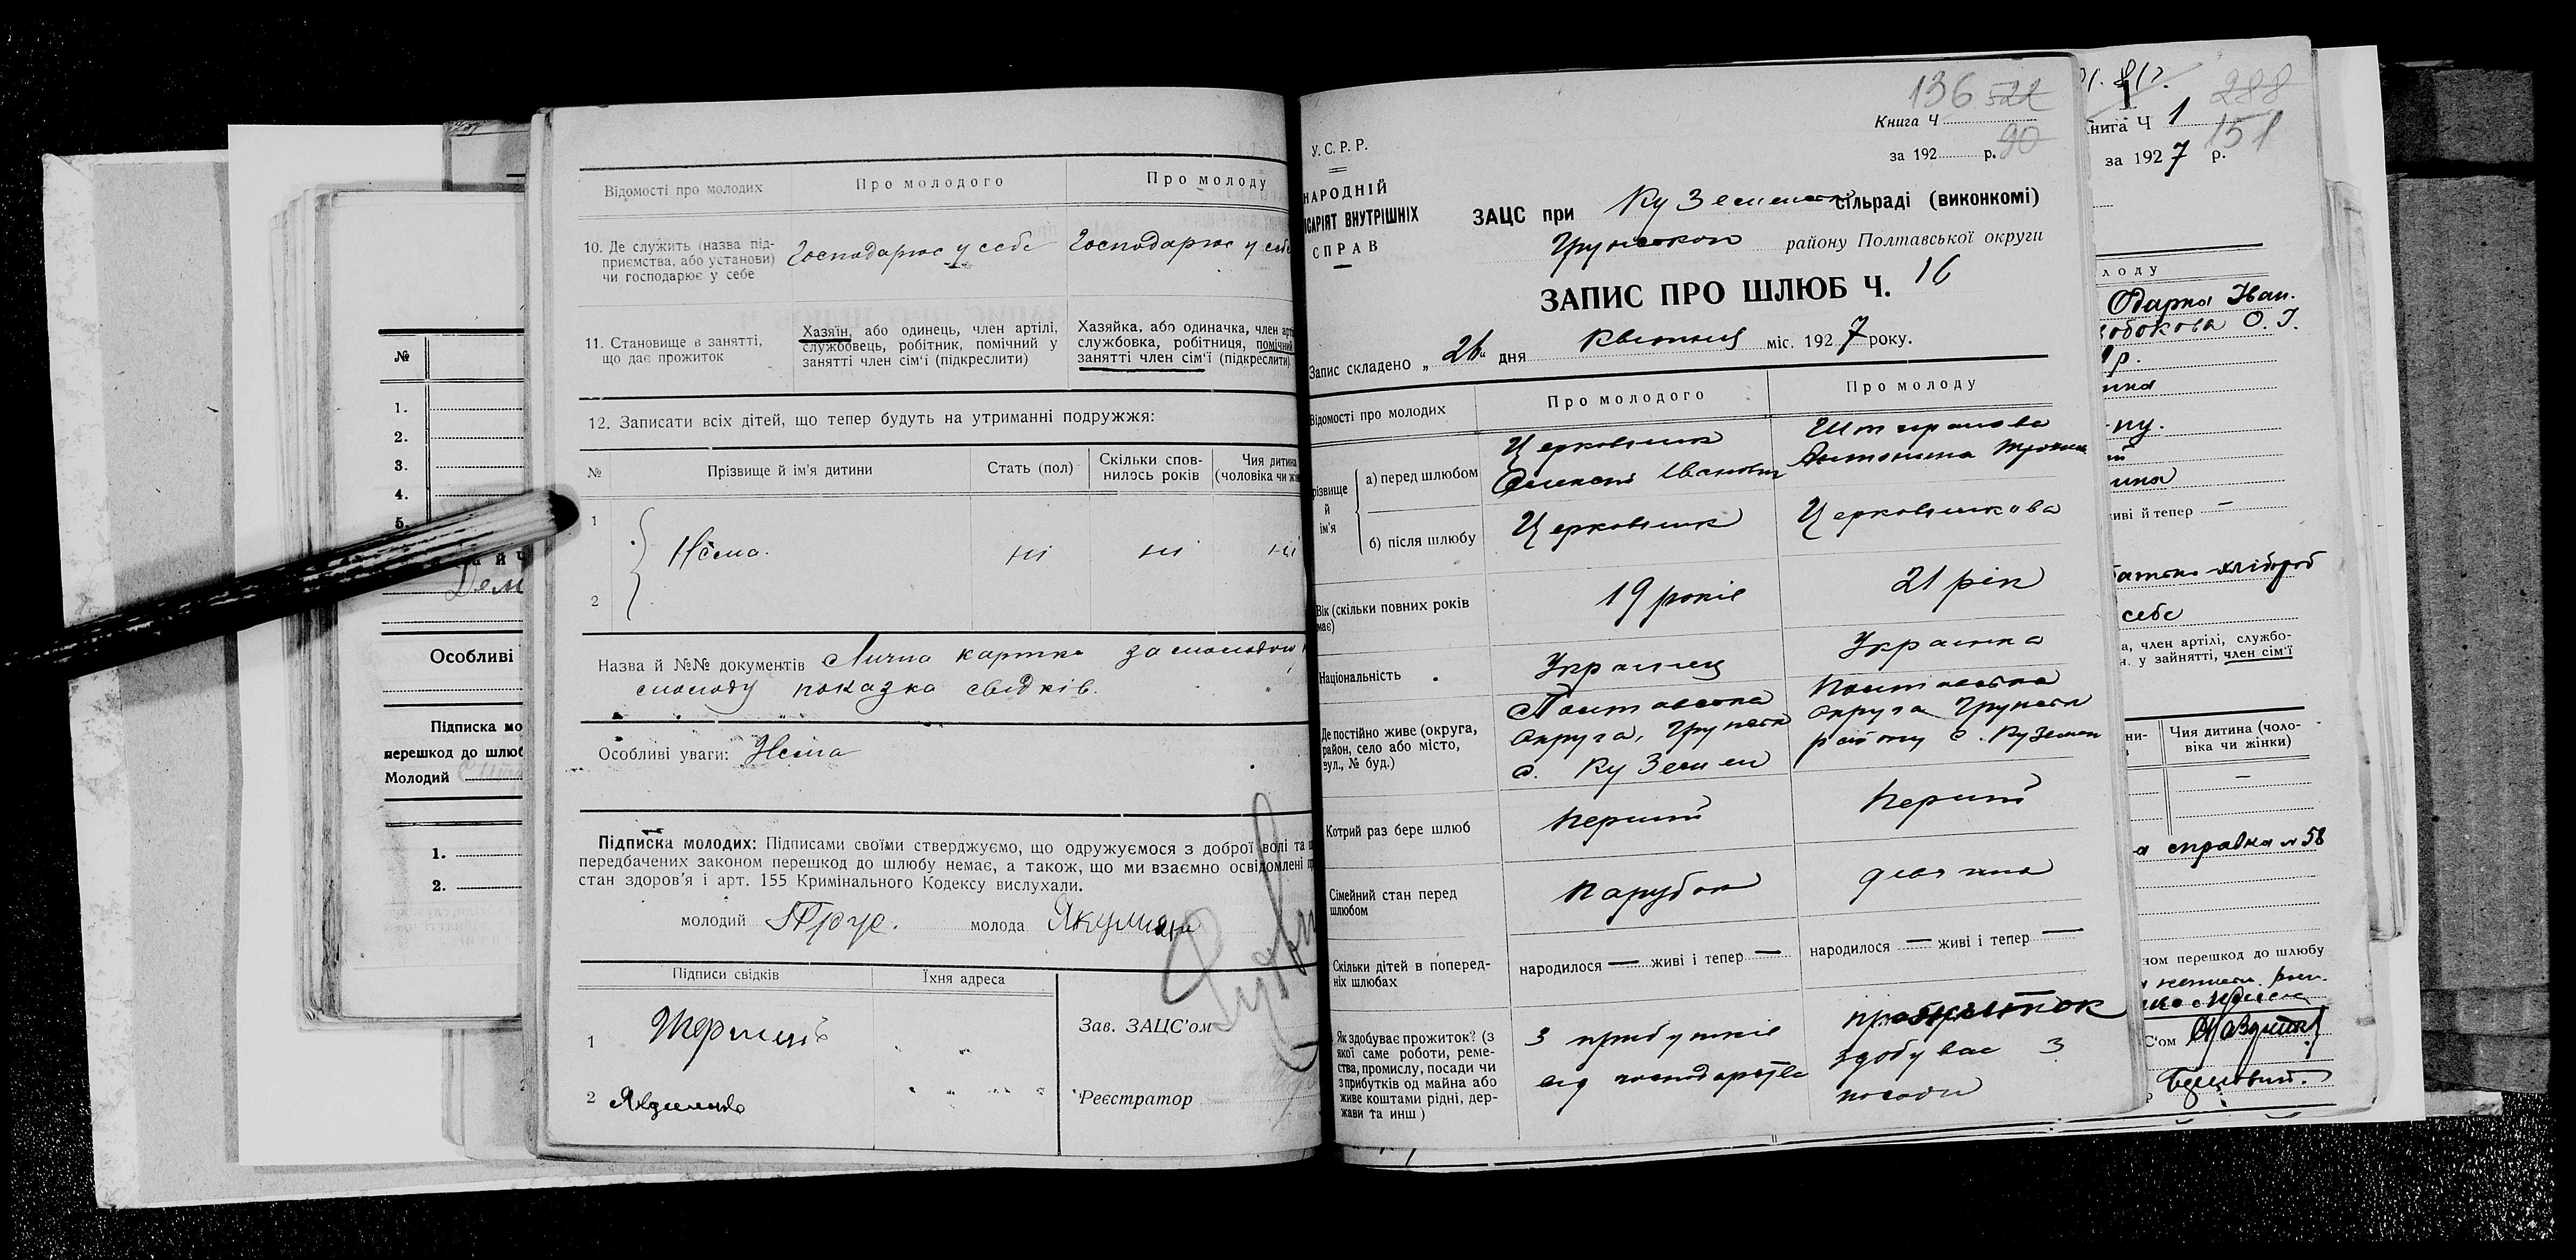 Відомості про молодих
Про молодого
Про молоду
10. Де служить (назва під-
приємства, або установи)
чи господарює у себе
Господарює у себе
Господарює у себе
11. Становище в занятті,
що дає прожиток
Хазяїн, або одинець, член артілі,
службовець, робітник, помічний у
занятті член сім'ї (підкреслити)
Хазяйка, або одиначка, член арт
службовка, робітниця, помічний
занятті член сім'ї (підкреслити)
12. Записати всіх дітей, що тепер будуть на утриманні подружжя:
№
Прізвище й ім'я дитини
Стать (пол)
Скільки спов-
нилось років
Чия дитина
(чоловіка чи жін
1
2
Нема.
ні
ні
ні
Назва й №№ документів Лична картка за молодого
молоду показка свідків.
Особливі уваги: Нема
Підписка молодих: Підписами своїми стверджуємо, що одружуємося з доброї волі та
передбачених законом перешкод до шлюбу немає, а також, що ми взаємно освідомлені
стан здоров'я і арт. 155 Кримінального Кодексу вислухали.
молодий
молода
Підписи свідків
Їхня адреса
1
2
Зав. ЗАЦС'ом
Реєстратор
№
1.
2.
3.
4.
5.
Особливі
Підписка мо
перешкод до шлюб
Молодий
1.
2.
136 522
Книга Ч
90
за 192 р.
У.С.Р.Р.
НАРОДНІЙ
ІСАРІЯТ ВНУТРІШНІХ
СПРАВ
ЗАЦС при Куземенськ сільраді (виконкомі)
Грунськом району Полтавської округи
ЗАПИС ПРО ШЛЮБ Ч. 16
Запис складено „ 26 " дня Квітня міс. 1927 року.
Відомості про молодих
Про молодого
Про молоду
різвище
й
ім'я
а) перед шлюбом
Церковник
Олексій Іванович
Антонина
б) після шлюбу
Церковник
Церковникова
Вік (скільки повних років
має)
19 років
21 рік
Національність
Українец
Українка
Де постійно живе (округа,
район, село або місто,
вул., № буд.)
Полтавська
округа, Грунськ
с. Куземен
Полтавська
округа Грунськ
району с. Куземен
Котрий раз бере шлюб
перший
перший
Сімейний стан перед
шлюбом
парубок
дівчина
Скільки дітей в поперед-
ніх шлюбах
народилося — живі і тепер —
народилося — живі і тепер —
Як здобуває прожиток? (з
якої саме роботи, реме-
ства, промислу, посади чи
з прибутків од майна або
живе коштами рідні, дер-
жави та инш)
З прибутків
від господарства
прожиток
здобуває з
посади
288
нига Ч 1
151
за 1927 р.
лоду
Одарка Іван.
О. І.
живі й тепер —
себе
а, член артілі, службо-
н. у зайнятті, член сім'ї
Чия дитина (чоло-
віка чи жінки)
—
а справка №58
ном перешкод до шлюбу
С'ом